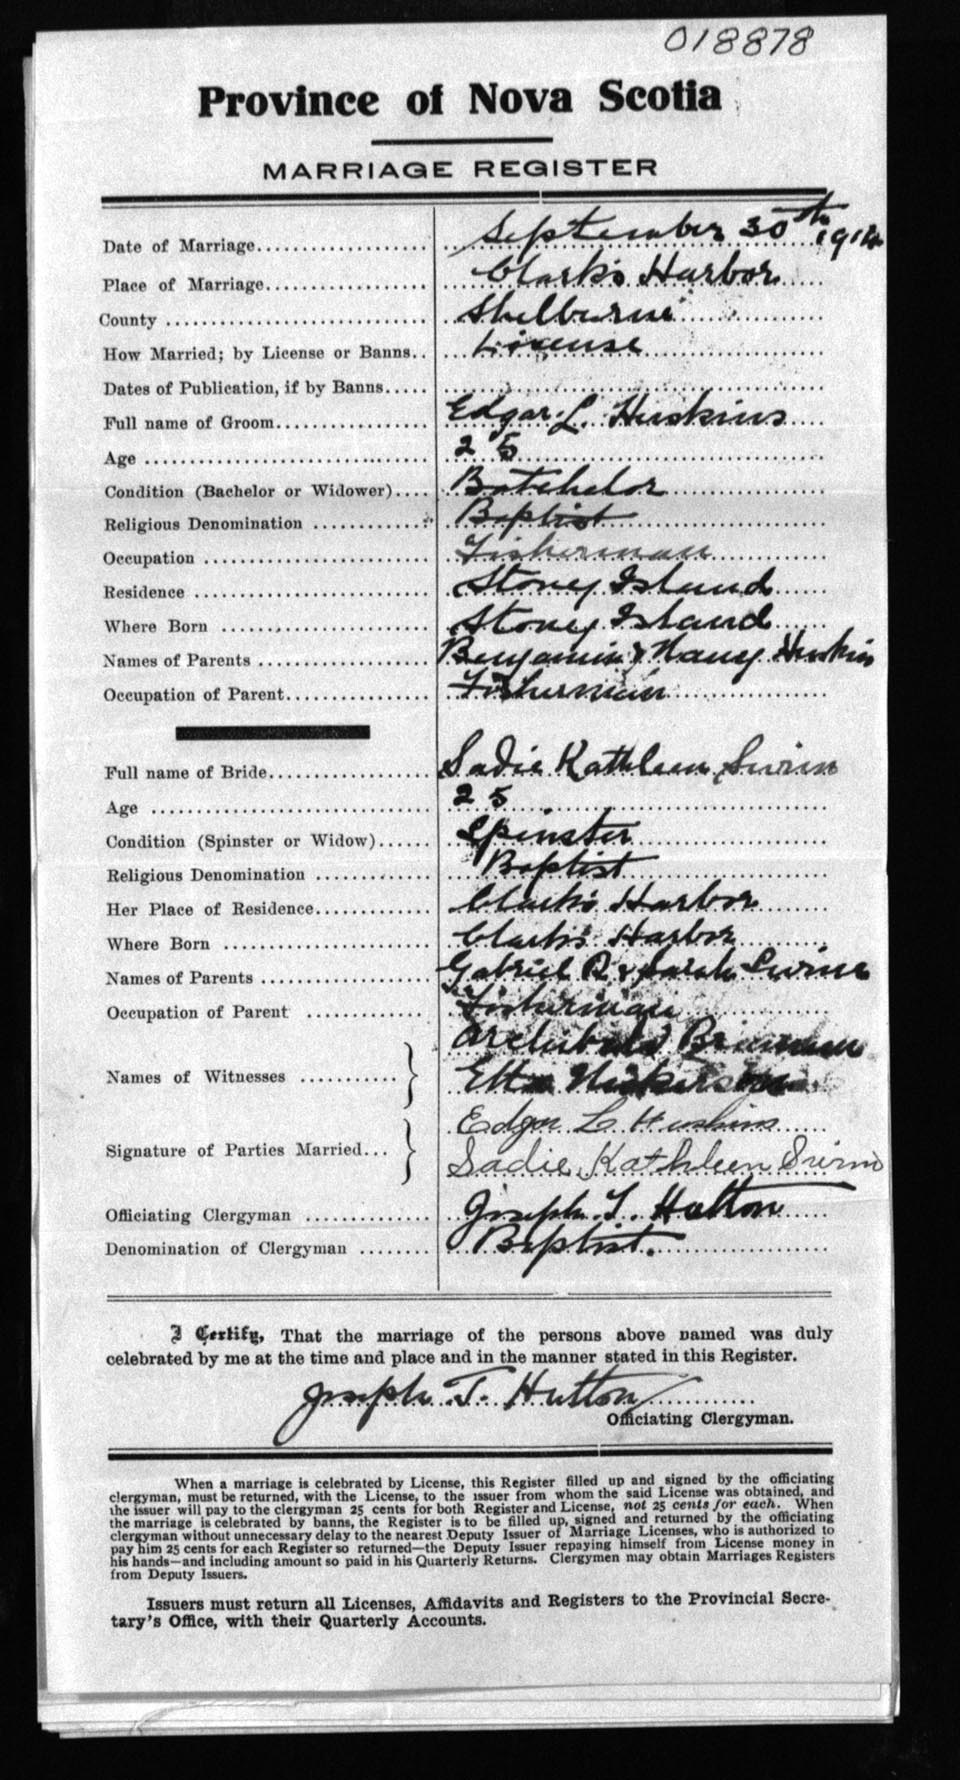 018878
Province of Nova Scotia
MARRIAGE REGISTER
Date of Marriage September 30th 1914
Place of Marriage Clark's Harbor
County Shelburne
How Married; by License or Banns License
Dates of Publication, if by Banns
Full name of Groom Edgar L. Huskins
Age 25
Condition (Bachelor or Widower) Batchelor
Religious Denomination Baptist
Occupation Fisherman
Residence Stoney Island
Where Born Stoney Island
Names of Parents Benjamin & Nancy Huskins
Occupation of Parent Fisherman
Full name of Bride Sadie Kathleen Swim
Age 25
Condition (Spinster or Widow) Spinster
Religious Denomination Baptist
Her Place of Residence Clark's Harbor
Where Born Clark's Harbor
Names of Parents Gabriel & Sarah Swim
Occupation of Parent Fisherman
Archibald
Names of Witnesses Etta Nickerson
Edgar L Huskins
Signature of Parties Married Sadie Kathleen Swim
Officiating Clergyman Joseph T. Hutton
Denomination of Clergyman Baptist.
I Certify, That the marriage of the persons above named was duly
celebrated by me at the time and place and in the manner stated in this Register.
Joseph T. Hutton
Officiating Clergyman.
When a marriage is celebrated by License, this Register filled up and signed by the officiating
clergyman, must be returned, with the License, to the issuer from whom the said License was obtained, and
the issuer will pay to the clergyman 25 cents for both Register and License, not 25 cents for each. When
the marriage is celebrated by banns, the Register is to be filled up, signed and returned by the officiating
clergyman without unnecessary delay to the nearest Deputy Issuer of Marriage Licenses, who is authorized to
pay him 25 cents for each Register so returned—the Deputy Issuer repaying himself from License money in
his hands—and including amount so paid in his Quarterly Returns. Clergymen may obtain Marriages Registers
from Deputy Issuers.
Issuers must return all Licenses, Affidavits and Registers to the Provincial Secre-
tary's Office, with their Quarterly Accounts.